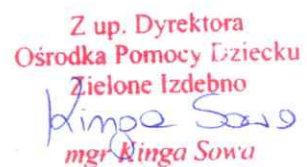 Z up. Dyrektora
Ośrodka Pomocy Dziecku
Zielone Izdebno
Kinga Sowa
mgr Kinga Sowa